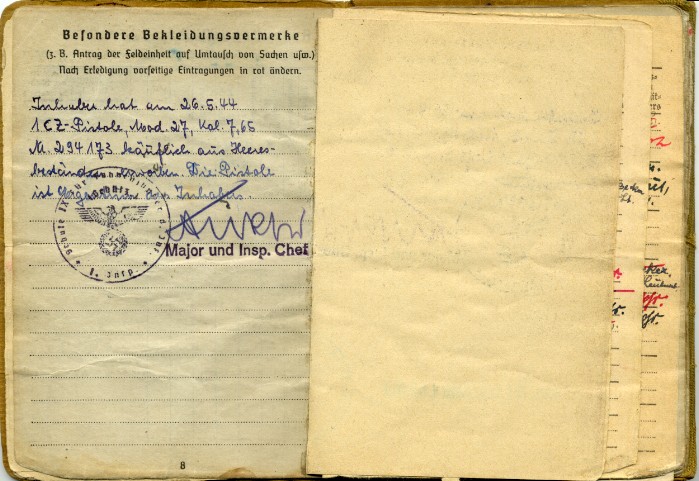 Besondere Bekleidungsvermerke
(z. B. Antrag der Feldeinheit auf Umtausch von Sachen usw.)
Nach Erledigung vorseitige Eintragungen in rot ändern.
Inhaber hat am 26.5.44
1 CZ-Pistole, Mod. 27, Kal. 7,65
N. 294173 käuflich aus Heeres-
beständen erworben. Die Pistole
ist Eigentum des Inhabers.
Major und Insp. Chef
1. Insp.
8